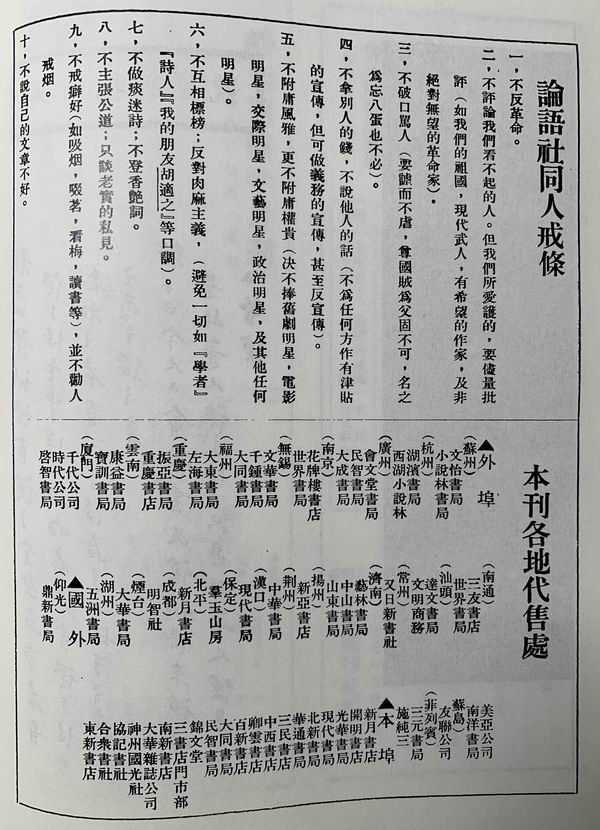 論語社同人戒條
一，不反革命。
二，不評論我們看不起的人。但我們所愛護的，要儘量批
評（如我們的祖國，現代武人，有希望的作家，及非
絕對無望的革命家）。
三，不破口罵人（要謔而不虐，尊國賊爲父固不可，名之
爲忘八蛋也不必）。
四，不拿別人的錢，不說他人的話（不爲任何方作有津貼
的宣傳，但可做義務的宣傳，甚至反宣傳）。
五，不附庸風雅，更不附庸權貴（决不捧舊劇明星，電影
明星，交際明星，文藝明星，政治明星，及其他任何
明星）。
六，不互相標榜；反對肉麻主義，（避免一切如『學者』
『詩人』『我的朋友胡適之』等口調）。
七，不做痰迷詩；不登香艷詞。
八，不主張公道；只談老實的私見。
九，不戒癖好（如吸烟，啜茗，看梅，讀書等），並不勸人
戒烟。
十，不說自己的文章不好。
本刊各地代售處
▲外埠
（蘇州）
文怡書局
小說林書局
（杭州）
湖濱書局
西湖小說林
（廣州）
會文堂書局
民智書局
大成書局
（南京）
花牌樓書店
世界書局
（無錫）
文華書局
千鍾書局
大同書局
（福州）
大東書局
左海書局
（重慶）
振亞書局
重慶書店
（雲南）
康益書局
寶訓書局
（廈門）
千代公司
時代公司
啓智書局
（南通）
三友書店
世界書局
（汕頭）
達文書局
文明商務
（常州）
又日新書社
（濟南）
藝林書局
中山書局
山東書局
（揚州）
新亞書店
（荆州）
中華書局
（漢口）
現代書局
（保定）
羣玉山房
（北平）
新月書店
（成都）
明智社
（煙台）
大華書局
（湖州）
五洲書局
▲國外
（仰光）
鼎新書局
美亞公司
南洋書局
（蘇島）
友聯公司
（菲列賓）
三元書局
施純三
▲本埠
新月書店
開明書店
光華書局
現代書局
北新書局
華通書局
三民書局
中西書店
卿雲書店
百新書店
大同書局
民智書局
錦文堂
三書店門市部
南新書店
大華雜誌公司
神州國光社
協記書社
合衆書社
東新書店